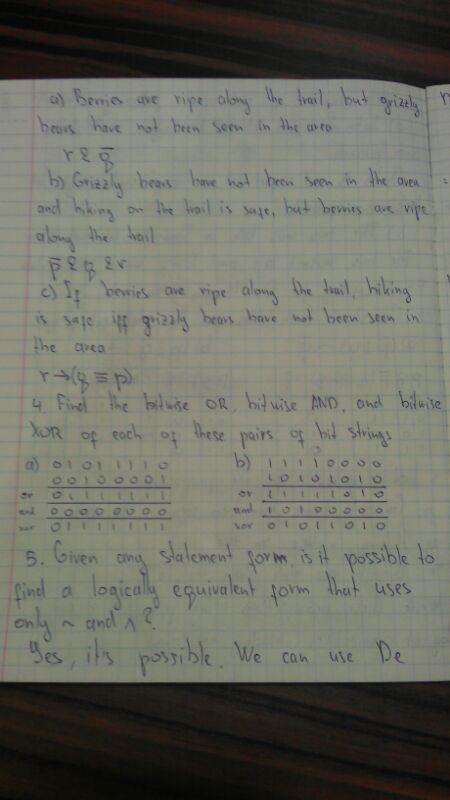 a) Berries are ripe along the trail, but grizzly
bears have not been seen in the area
r & q̅
b) Grizzly bears have not been seen in the area
and hiking on the trail is safe, but berries are ripe
along the trail
p̅ & q & r
c) If berries are ripe along the trail, hiking
is safe iff grizzly bears have not been seen in
the area
r → (q ≡ p)
4. Find the bitwise OR, bitwise AND, and bitwise
XOR of each of these pairs of bit strings
a) 0 1 0 1 1 1 1 0 b) 1 1 1 1 0 0 0 0
0 0 1 0 0 0 0 1 1 0 1 0 1 0 1 0
or 0 1 1 1 1 1 1 1 or 1 1 1 1 1 0 1 0
and 0 0 0 0 0 0 0 0 and 1 0 1 0 0 0 0 0
xor 0 1 1 1 1 1 1 1 xor 0 1 0 1 1 0 1 0
5. Given any statement form, is it possible to
find a logically equivalent form that uses
only ~ and ∧?
Yes, it's possible. We can use De